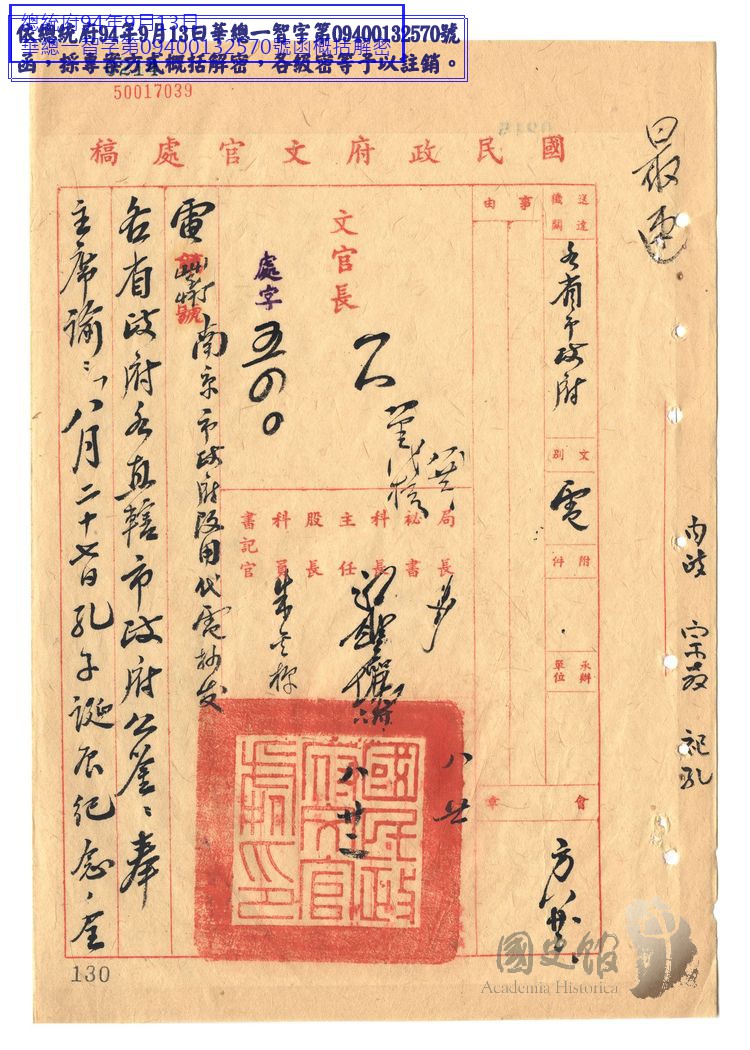 總統府94年9月13日
華總一智字第09400132570號函概括解密
依總統府94年9月13日華總一智字第09400132570號
函，採專案方式概括解密，各級密等予以註銷。
50017039
最速
國民政府文官處稿
送達機關
各省市政府
文別
電
附件
承辦單位
事由
會章
文官長
處字
五四0
局長
秘書
科長
主任
股長
科員
書記官
八廿
八廿二
電
號
南京市政府改用代電抄发
各省政府各直轄市政府公鉴：奉
主席諭：「八月二十七日孔子誕辰纪念，全
內政 宗教 祀孔
國民政府文官處印
130
國史館
Academia Historica